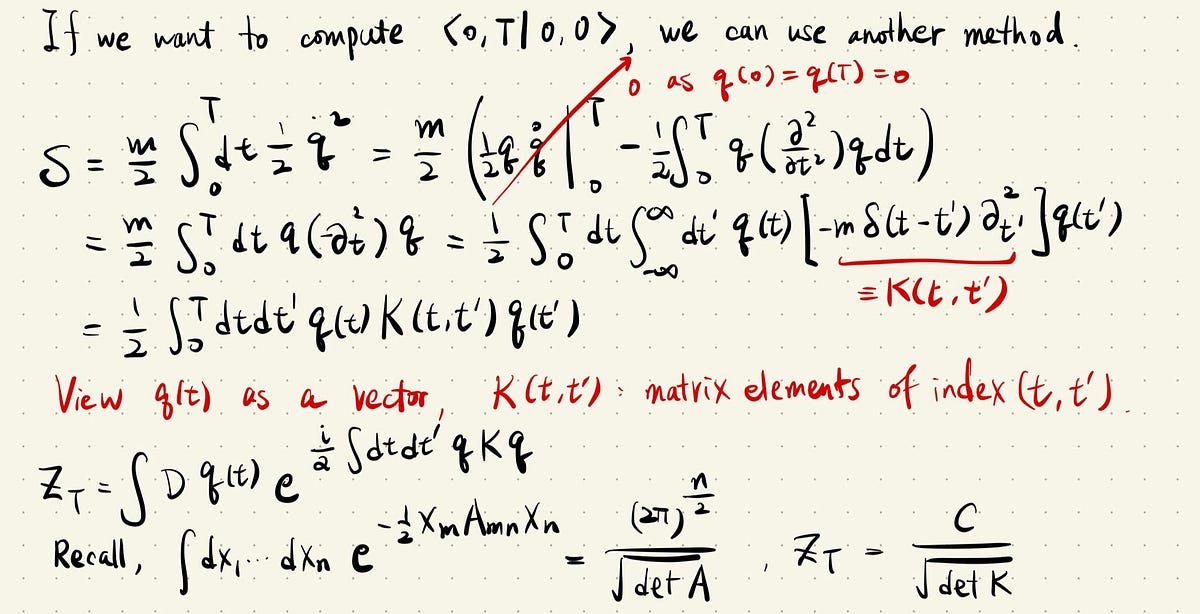 If we want to compute ⟨0,T|0,0⟩, we can use another method.
0 as q(0)=q(T)=0
S = m/2 ∫₀ᵀ dt 1/2 q̇² = m/2 ( 1/2 q q̇ |₀ᵀ − 1/2 ∫₀ᵀ q(∂²/∂t²)q dt )
= m/2 ∫₀ᵀ dt q(−∂ₜ²) q = 1/2 ∫₀ᵀ dt ∫_{−∞}^{∞} dt' q(t) [−m δ(t−t') ∂²_{t'}] q(t')
≡ K(t,t')
= 1/2 ∫₀ᵀ dt dt' q(t) K(t,t') q(t')
View q(t) as a vector, K(t,t') : matrix elements of index (t,t').
Z_T = ∫ D q(t) e^{i/2 ∫dt dt' q K q}
Recall, ∫ dx₁ ... dxₙ e^{−1/2 x_m A_{mn} x_n} = (2π)^{n/2} / √det A , Z_T = C / √det K